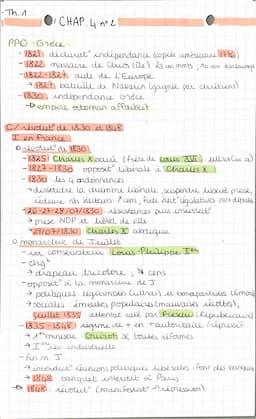 Th. 1
CHAP. 4 n°2
PPO: Grèce
- 1821 déclarat° indépendance (copiée américaine 1776)
- 1822 massacre de Chios (île)
- 1822-1827 aide de l'Europe
- 1827 bataille de Navarin (gagnée par chrétiens)
- 1830 indépendance Grèce
→ empire ottoman affaiblit
C/ révolut° de 1830 et 1848
I en France
o révolut° de 1830
- 1825 Charles X sacré (frère de Louis XVI, ultra)
- 1827-1830 opposit° libérale à Charles X
- 1830 les 4 ordonnances
→ dissoudre la chambre libérale, suspendre liberté presse,
réduire nb électeurs
- 26-27-28/07/1830 résistance puis insurrect°
→ prise ND et hôtel de ville
- 29/07/1830 Charles X abdique
o monarchie de Juillet
- roi conservateur Louis-Philippe Ier
- chgt
→ drapeau tricolore, cens
- opposit° à la monarchie de J
→ politiques légitimistes (ultras) et bonapartistes
→ sociales émeutes populaires (mauvaises récoltes),
juillet 1835 attentat raté par Fieschi (Républicain)
- 1835-1848 régime de + en + autoritaire/répressif
→ 1er ministre Guizot X toutes réformes
→ Ière rév industrielle
- fin m. J
→ interdict° réunions politiques libérales : font des banquets
→ 1848 banquet interdit à Paris
→ 1848 révolut° (manifestat°, répression)